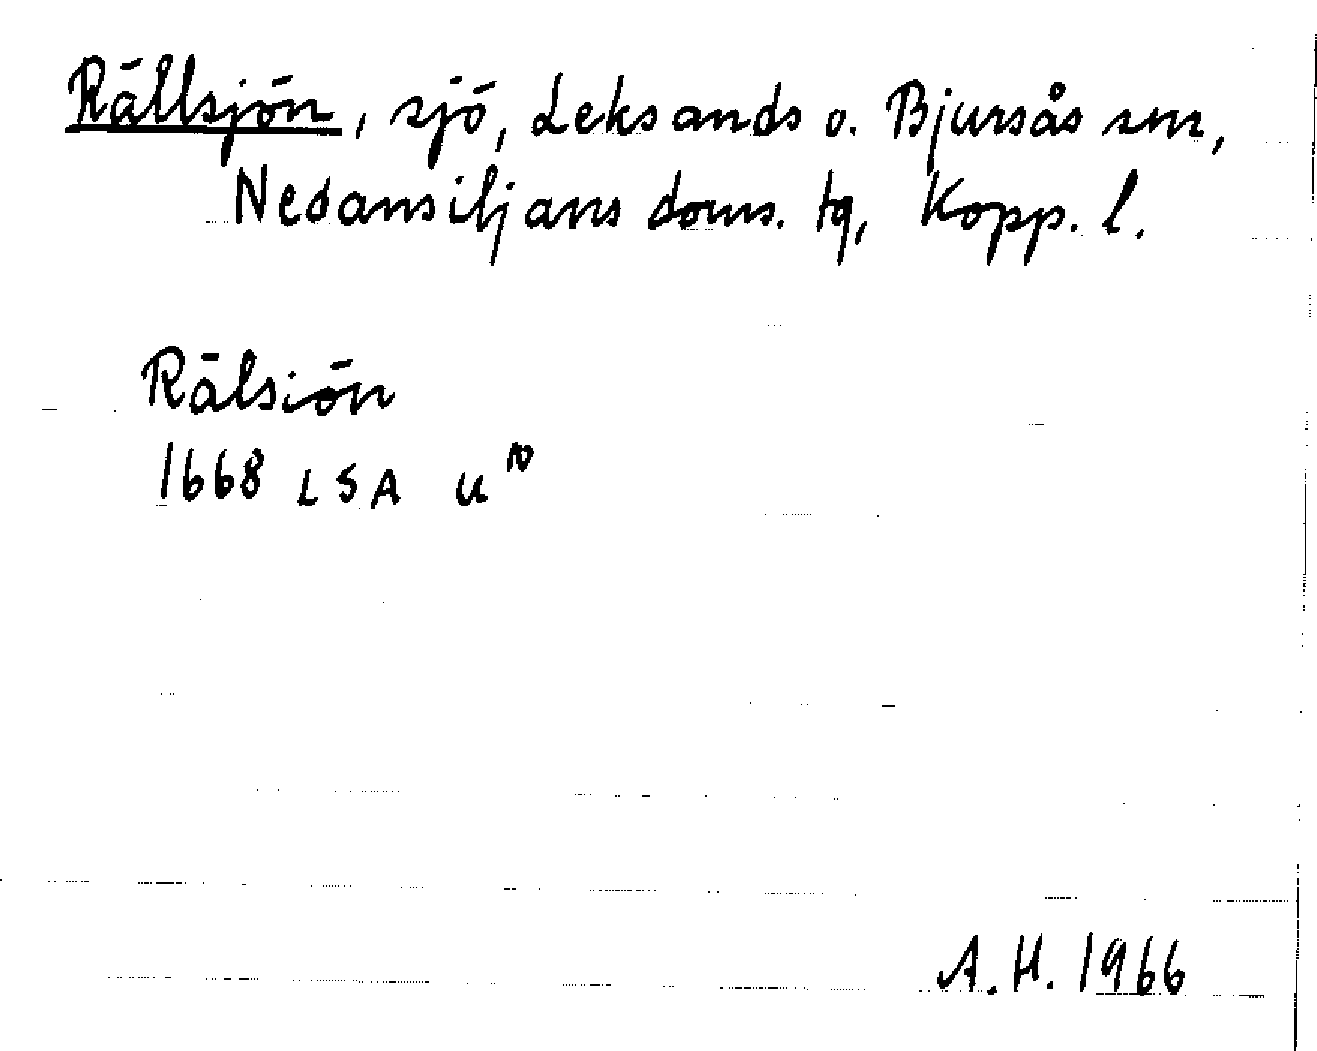 Rällsjön, sjö, Leksands o. Bjursås snr,
Nedansiljans doms. tg, Kopp. l.
Rälsiön
1668 LSA U 10
A.H. 1966